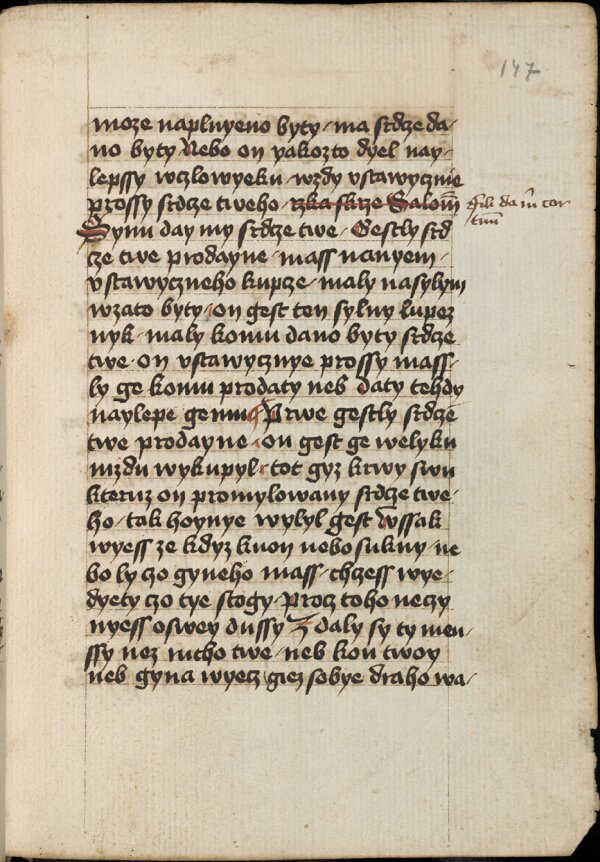 147
moze naplnyeno byty / ma srdcze da-
no byty Nebo on yakozto dyel nay-
lepssy wczlowyeku / wzdy vstawycznie
prossy srdcze tweho / rzka skrze Salom̄
fili da m̄ cor
tuū
Synu day my srdcze twe / Gestly srd
cze twe prodayne / mass nanyem /
vstawyczneho kupcze / maly nasylym
wzato byty / on gest ten sylny lupez
nyk / maly komu dano byty srdcze
twe / on vstawycznye prossy mass-
ly ge komu prodaty neb daty tehdy
naylepe gemu ¶ Prwe gestly srdcze
twe prodayne / on gest ge welyku
mzdu wykupyl / tot gyz krwy swu
kteruz on promylowany srdcze twe-
ho / tak hoynye wylyl gest Wssak
wyess ze kdyz kuon nebo sukny / ne
bo ly czo gyneho mass / chczess wye-
dyety czo tye stogy / Procz toho neczy
nyess o swey dussy Z daly sy ty men-
ssy nez rucho twe / neb kon twoy
neb gyna wyecz giez sobye draho wa-